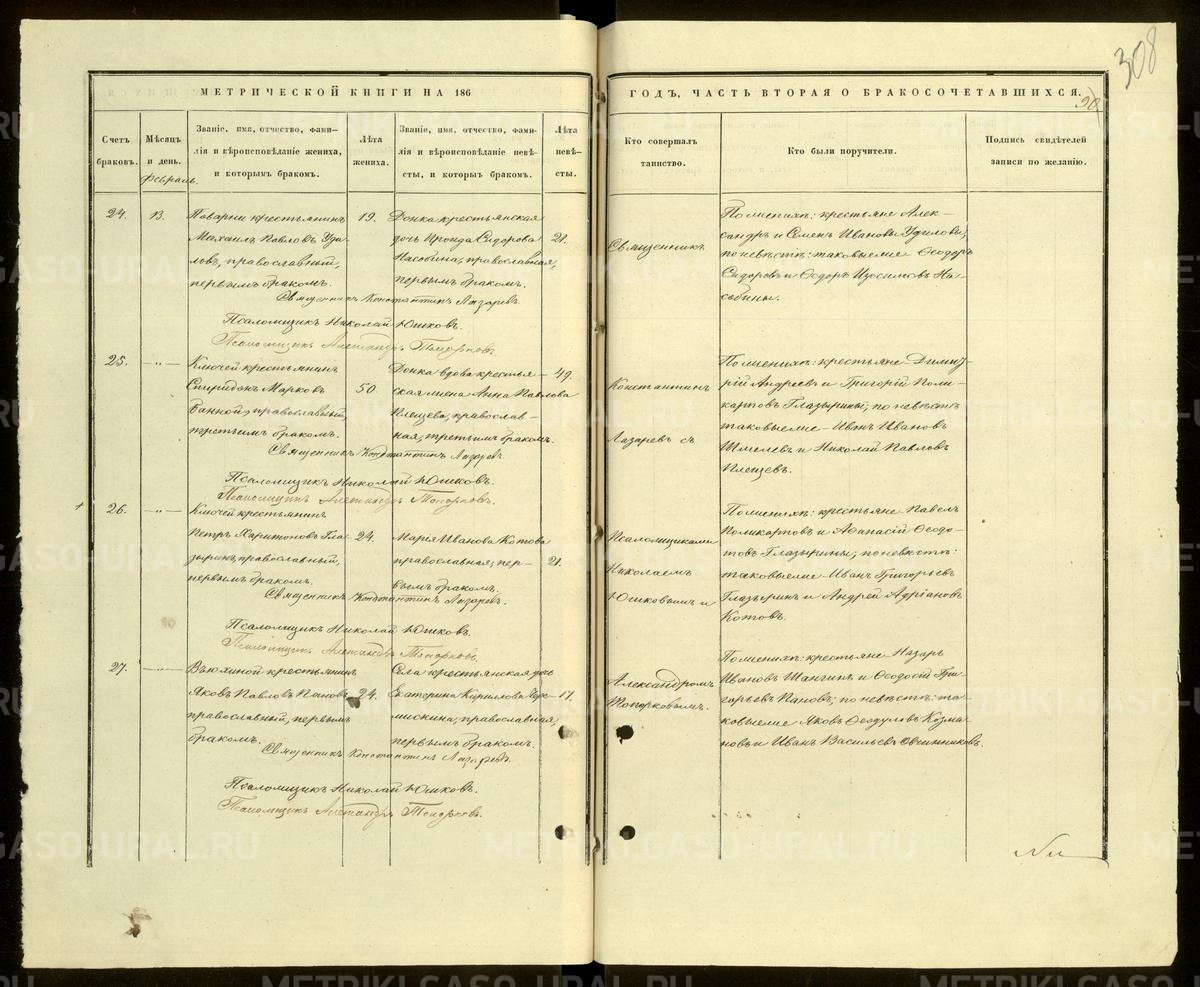 308
МЕТРИЧЕСКОЙ КНИГИ НА 186
ГОДЪ, ЧАСТЬ ВТОРАЯ О БРАКОСОЧЕТАВШИХСЯ.
Счетъ браковъ.
Мѣсяцъ и день.
Февраль.
Званіе, имя, отчество, фами-
лія и вѣроисповѣданіе жениха,
и которымъ бракомъ.
Лѣта
жениха.
Званіе, имя, отчество, фами-
лія и вѣроисповѣданіе невѣ-
сты, и которымъ бракомъ.
Лѣта
невѣ-
сты.
Кто совершалъ
таинство.
Кто были поручители.
Подпись свидѣтелей
записи по желанію.
24.
13.
крестьянинъ
Михаилъ Павловъ Уди-
ловъ, православный,
первымъ бракомъ.
19.
Донка крестьянская
дочь Сидорова
православная,
первымъ бракомъ.
21.
Священникъ Константинъ Лазаревъ.
Псаломщикъ Николай Юшковъ.
Псаломщикъ Александръ Топорковъ.
По женихѣ: крестьяне Алек-
сандръ и Семенъ Ивановы Удиловы;
по невѣстѣ: таковыеже Ѳеодоръ
Сидоровъ и Ѳедоръ Изосимовъ На-
собины.
25.
— " —
Ключей крестьянинъ
Спиридонъ Марковъ
православный,
третьимъ бракомъ.
50.
Донка вдова крестья-
ская жена Анна Павлова
Плещева, православ-
ная, третьимъ бракомъ.
49.
Священникъ Константинъ Лазаревъ.
Псаломщикъ Николай Юшковъ.
Псаломщикъ Александръ Топорковъ.
По женихѣ: крестьяне Димит-
рій Андреевъ и Григорій Поли-
карповъ Глазырины; по невѣстѣ
таковыеже – Иванъ Ивановъ
Шмелевъ и Николай Павловъ
Плещевъ.
26.
— " —
Ключей крестьянинъ
Петръ Харитоновъ Гла-
зыринъ, православный,
первымъ бракомъ.
24.
Марія Иванова Котова
православная, пер-
вымъ бракомъ.
21.
Священникъ Константинъ Лазаревъ.
Псаломщикъ Николай Юшковъ.
Псаломщикъ Александръ Топорковъ.
По женихѣ: крестьяне Павелъ
Поликарповъ и Аѳанасій Ѳеодо-
товъ Глазырины; по невѣстѣ:
таковыеже – Иванъ Григорьевъ
Глазыринъ и Андрей Адріановъ
Котовъ.
27.
— " —
Вьюхиной крестьянинъ
Яковъ Павловъ Пановъ
православный, первымъ
бракомъ.
24.
Села крестьянская дочь
Екатерина Кириллова Чер-
мискина, православная,
первымъ бракомъ.
17.
Священникъ Константинъ Лазаревъ.
Псаломщикъ Николай Юшковъ.
Псаломщикъ Александръ Топорковъ.
По женихѣ: крестьяне Назаръ
Ивановъ Шангинъ и Ѳеодосій Гри-
горьевъ Пановъ; по невѣстѣ: та-
ковыеже Яковъ Ѳеодуловъ Козма-
новъ и Иванъ Васильевъ Овчинниковъ.
Священникъ
Константинъ
Лазаревъ съ
Псаломщиками
Николаемъ
Юшковымъ и
Александромъ
Топорковымъ.
METRIKI.GASO-URAL.RU